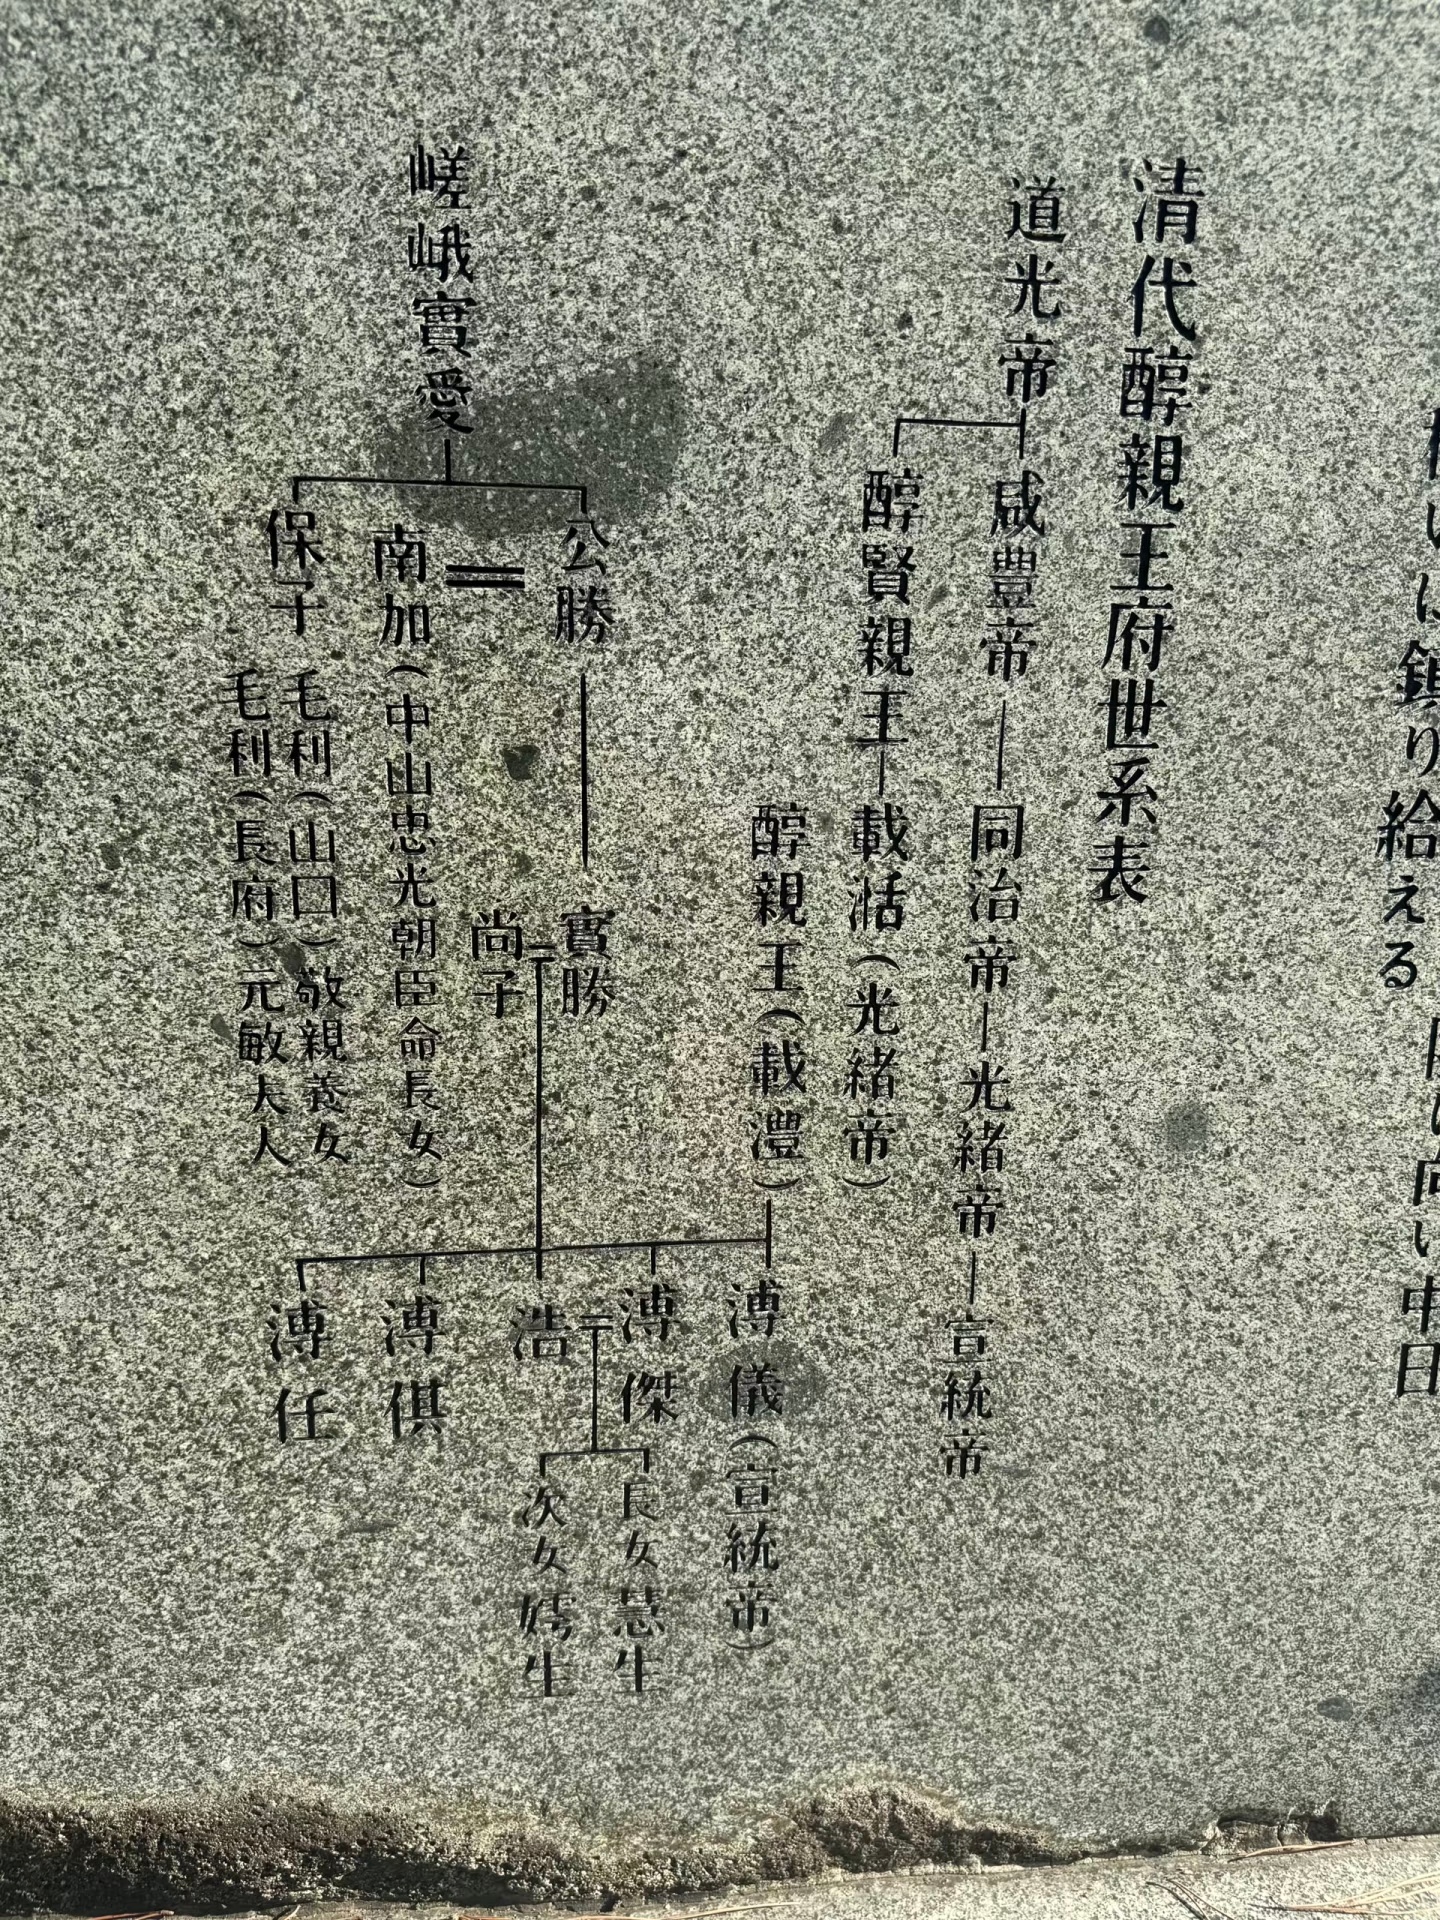 清代醇親王府世系表
道光帝
咸豊帝―同治帝―光緒帝―宣統帝
醇賢親王―載湉(光緒帝)
醇親王(載灃)
溥儀(宣統帝)
溥傑
浩
溥倶
溥任
長女慧生
次女嫮生
嵯峨實愛
公勝―實勝
尚子
南加(中山忠光朝臣命長女)
保子
毛利(山口)敬親養女
毛利(長府)元敏夫人